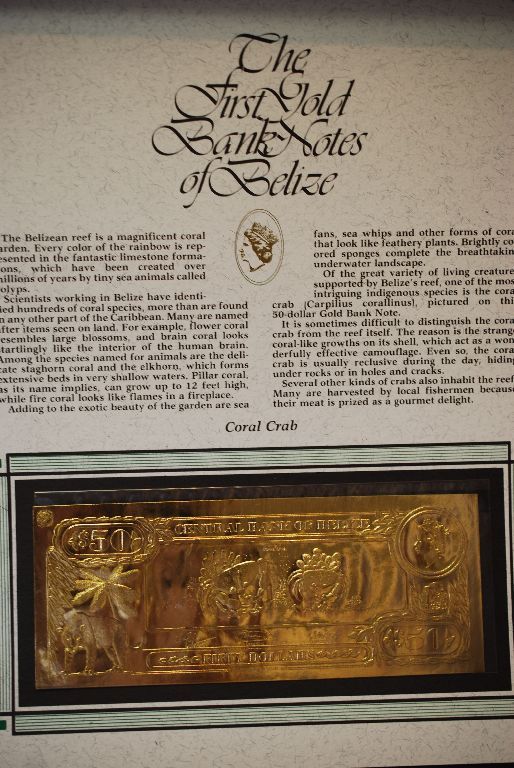 The
First Gold
Bank Notes
of Belize
The Belizean reef is a magnificent coral
arden. Every color of the rainbow is rep-
esented in the fantastic limestone forma-
ons, which have been created over
illions of years by tiny sea animals called
olyps.
Scientists working in Belize have identi-
ied hundreds of coral species, more than are found
n any other part of the Caribbean. Many are named
fter items seen on land. For example, flower coral
esembles large blossoms, and brain coral looks
tartlingly like the interior of the human brain.
Among the species named for animals are the deli-
cate staghorn coral and the elkhorn, which forms
extensive beds in very shallow waters. Pillar coral,
as its name implies, can grow up to 12 feet high,
while fire coral looks like flames in a fireplace.
Adding to the exotic beauty of the garden are sea
fans, sea whips and other forms of cora
that look like feathery plants. Brightly co
ored sponges complete the breathtakin
underwater landscape.
Of the great variety of living creature
supported by Belize's reef, one of the mos
intriguing indigenous species is the cora
crab (Carpilius corallinus), pictured on thi
50-dollar Gold Bank Note.
It is sometimes difficult to distinguish the cora
crab from the reef itself. The reason is the strang
coral-like growths on its shell, which act as a won
derfully effective camouflage. Even so, the cora
crab is usually reclusive during the day, hiding
under rocks or in holes and cracks.
Several other kinds of crabs also inhabit the reef
Many are harvested by local fishermen because
their meat is prized as a gourmet delight.
Coral Crab
$50
CENTRAL BANK OF BELIZE
$50
FIFTY DOLLARS